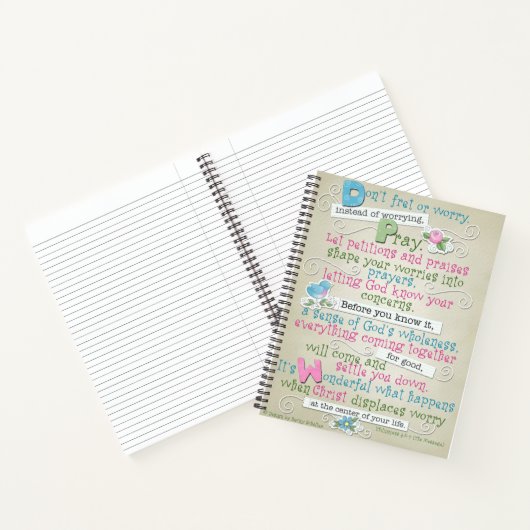 Don't fret or worry.
Instead of worrying,
Pray.
Let petitions and praises
shape your worries into
prayers,
letting God know your
concerns.
Before you know it,
a sense of God's wholeness,
everything coming together
for good,
will come and
settle you down.
It's Wonderful what happens
when Christ displaces worry
at the center of your life.
Philippians 4:6-7 (The Message)